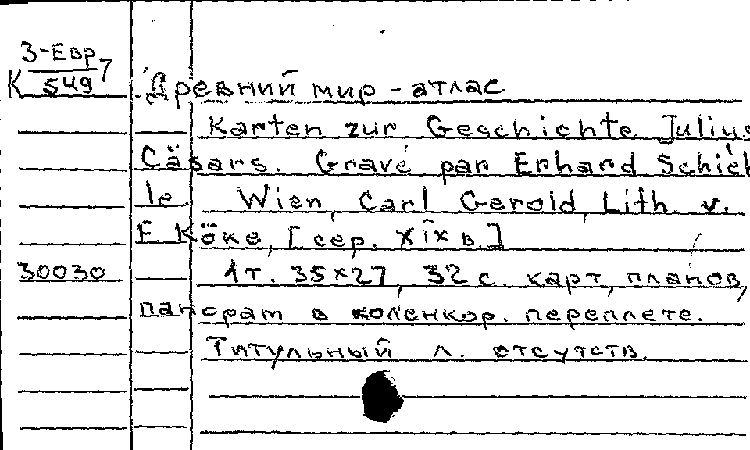 К 3-Евр7
549
Древний мир - атлас
Karten zur Geschichte Julius
Cäsars. Gravé par Erhard Schieb
le Wien, Carl Gerold, Lith. v.
F. Köke, [сер. XIX в.]
30030 1 т. 35×27, 32 с. карт, планов,
панорам в коленкор. переплете.
Титульный л. отсутств.